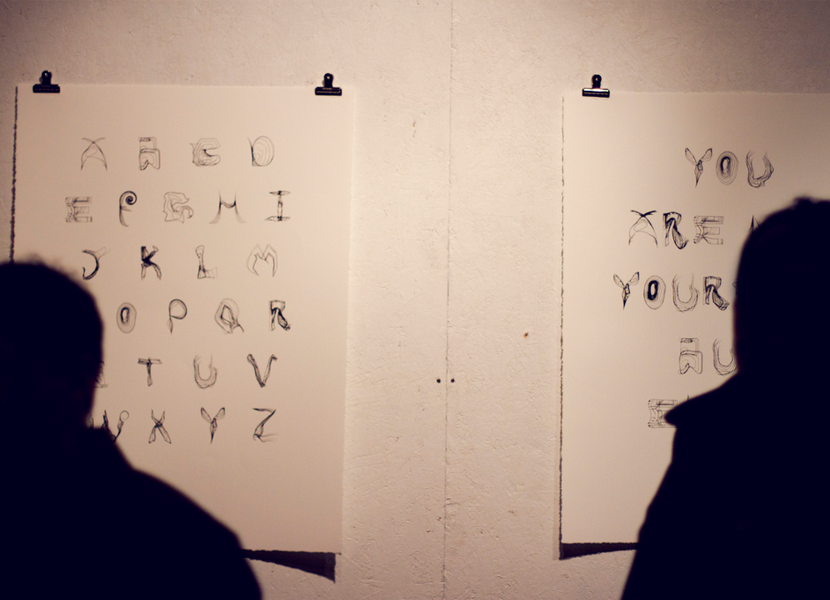 A B C D
E F G H I
J K L M
O P Q R
T U V
W X Y Z
YOU
ARE
YOUR
BU
E